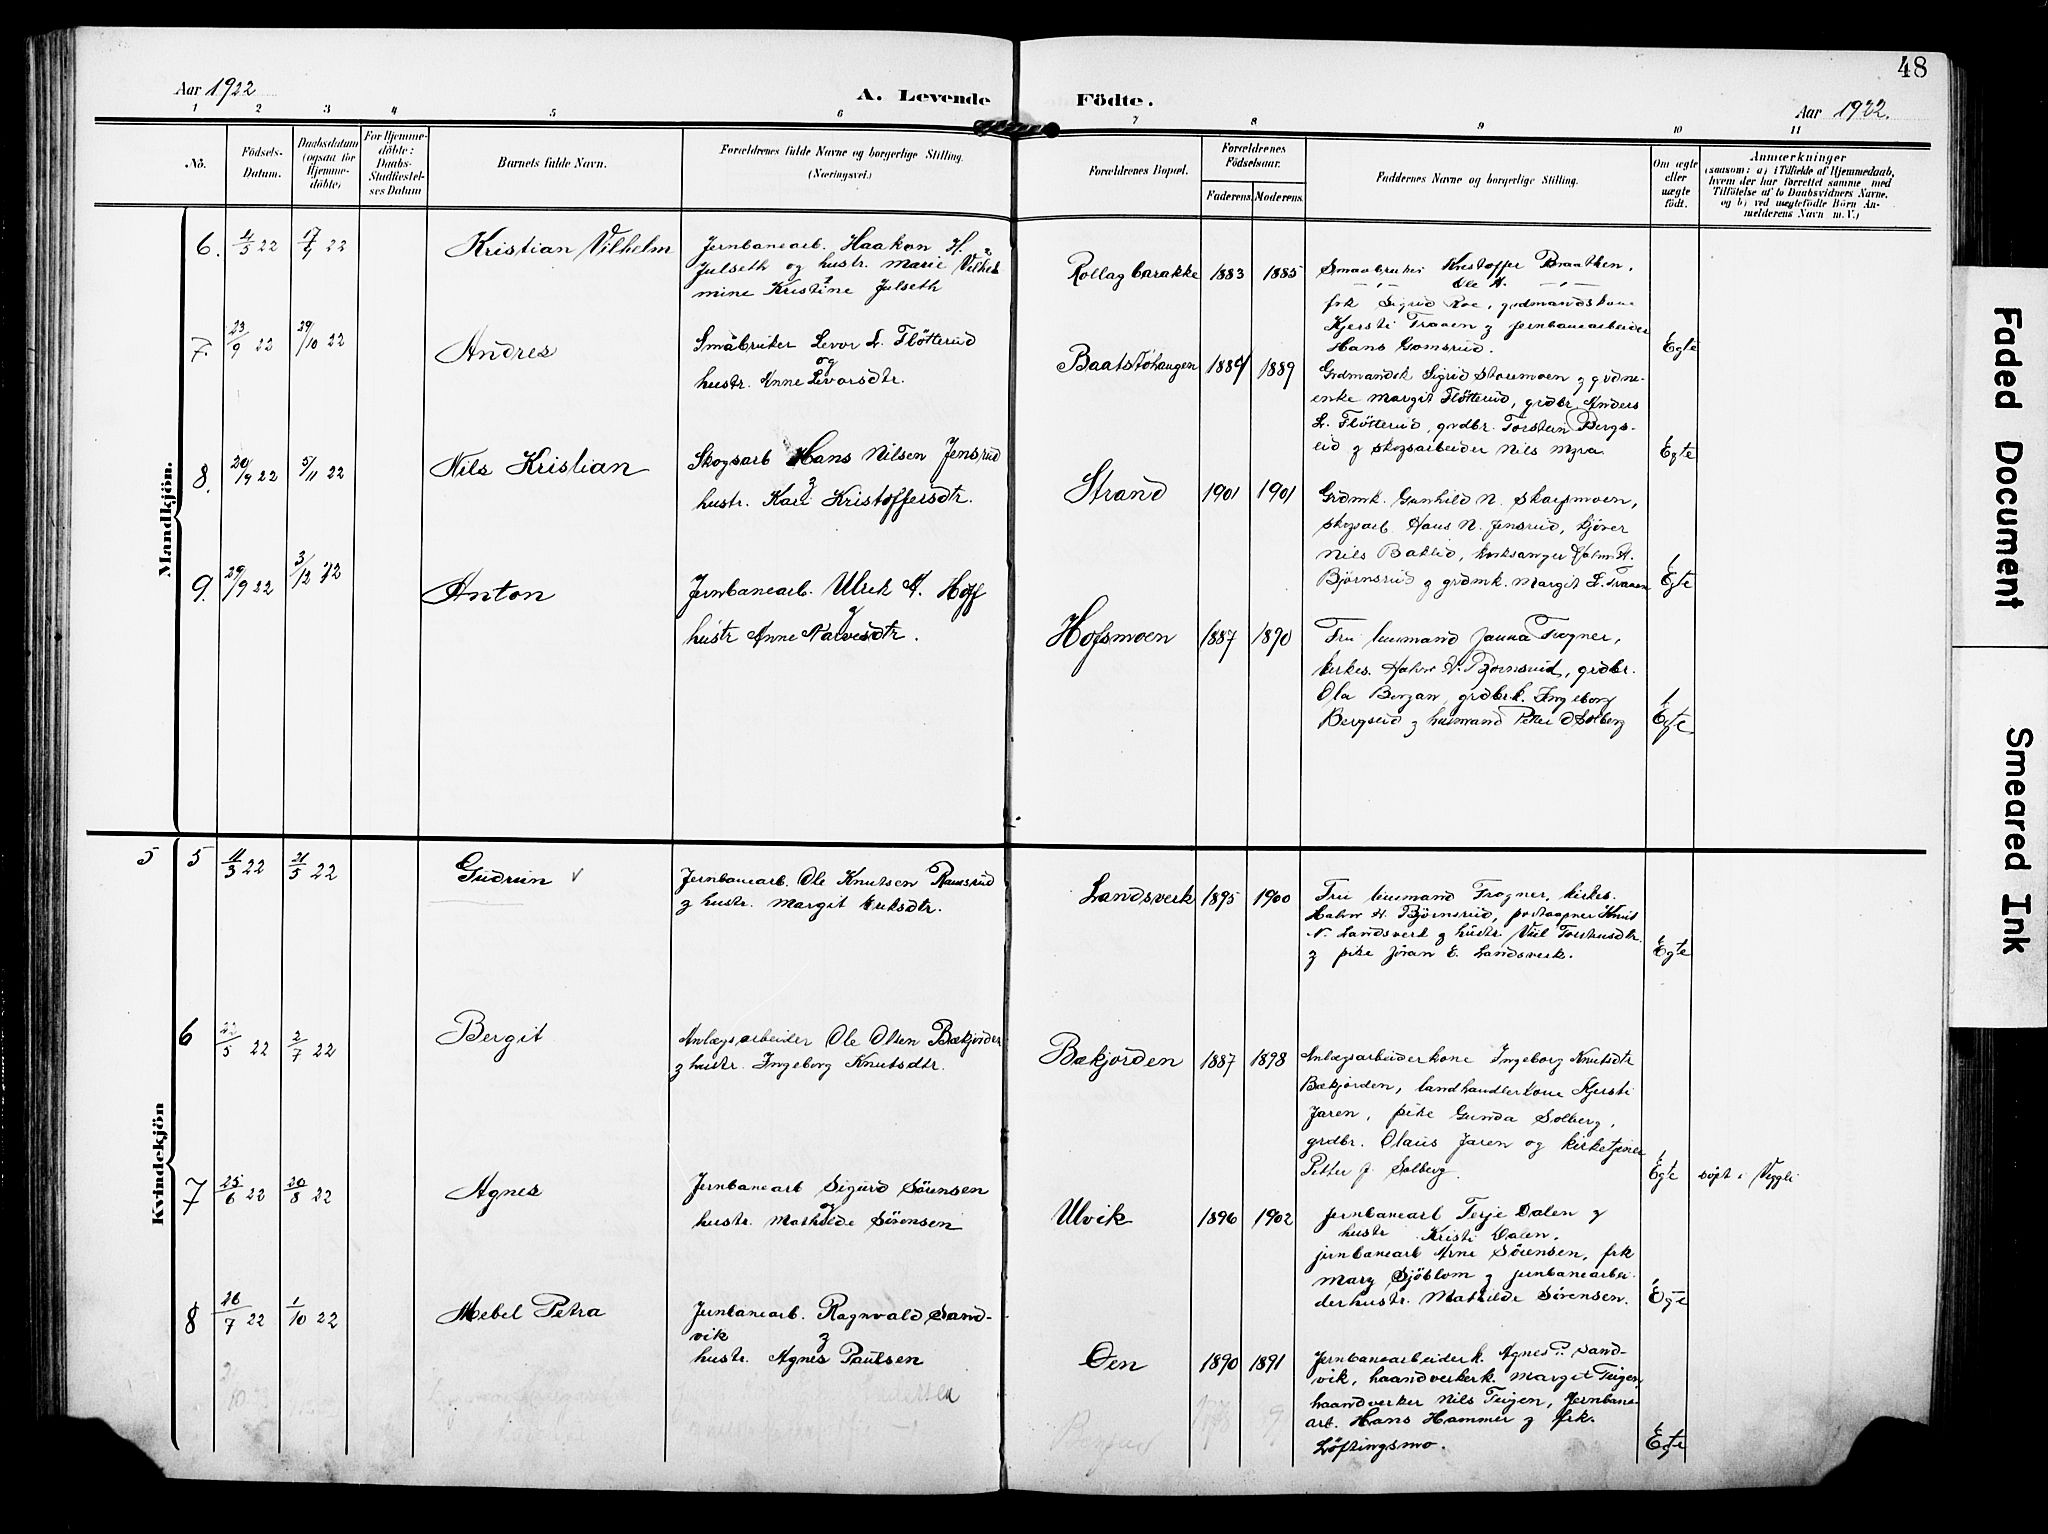 48
Aar 1922
A. Levende
Födte.
Aar 1922.
1 2 3 4 5 6 7 8 9 10 11
No.
Födsels-
Datum.
Daabsdatum
(ogsaa for
Hjemme-
döbte)
For Hjemme-
döbte:
Daabs-
Stadfæstel-
ses Datum
Barnets fulde Navn.
Forældrenes fulde Navne og borgerlige Stilling.
(Næringsvei.)
Forældrenes Bopæl.
Forældrenes
Födselsaar.
Faderens.
Moderens.
Faddernes Navne og borgerlige Stilling.
Om ægte
eller
uægte
født.
Anmærkninger
(saasom: a) i Tilfælde af Hjemmedaab,
hvem der har forrettet samme med
Tilföielse af to Daabsvidners Navne,
og b) ved uægtefödte Börn An-
melderens Navn m. V.)
Mandkjön.
6. 4/5 22
Kristian Vilhelm
Jernbanearb. Haakon H.
Julseth og hustr. Marie Vilhel
mine Kristine Julseth
Rollag barakke 1883 1885
Smaabruker Kristoffer Braathen,
Ole H.
frk Sigrid Roe, grdmandskone
Kjersti Traaen & jernbanearbeider
Hans Gomsrud.
Egte
7. 23/9 22 29/10 22
Andres
Småbruker Levor L. Flötterud
og
hustr. Anne Levorsdtr.
Baatstöhaugen 1889
Grdmandsk Sigrid Storemoen & grdm-
enke Margit Flötterud, grdbr. Anders
L. Flötterud, grdbr. Torstein Bergs-
eid & skogsarbeider Nils Myra.
Egte
8. 20/9 22 5/11 22
Nils Kristian
Skogsarb Hans Nilsen Jensrud
&
hustr. Kari Kristoffersdtr.
Strand 1901 1901
Grdmk. Gunhild N. Skarpmoen,
skogsarb Hans N. Jensrud,
Nils Baklid, kirksanger Halvor H.
Bjørnsrud & grdmk. Margit L. Traaen
Egte
9. 29/9 22 3/12 22
Anton
Jernbanearb. Ulrik A. Hoff
&
hustr Anne Narvesdtr.
Hofsmoen 1887 1890
Fru lensmand Fragner,
kirkes. Halvor H. Bjørnsrud, grdbr.
Ola Bergan, grdbrk. Ingeborg
Bergseid & husmand Petter Solberg
Egte
Kvindekjön
5 5 11/3 22 21/5 22
Gudrun v
Jernbanearb. Ole Knutsen Ramsrud
& hustr. Margit Eriksdtr.
Landsverk 1895 1900
Fru lensmand Fragner, kirkes.
Halvor H. Bjørnsrud, postaapner Knut
N. Landsverk & hustr.
& pike Jöran E. Landsverk.
Egte
6 /5 22 2/7 22
Bergit
Anlægsarbeider Ole Olsen Bækjorden
& hustr. Ingeborg Knutsdtr.
Bækjorden 1887 1898
Anlægsarbeiderkone Ingeborg Knutsdtr
Bækjorden, landhandlerkone Kjersti
Jaren, pike Gunda Solberg,
grdbr. Olaus Jaren og kirketjener
Petter J. Solberg.
Egte
döpt i Veggli
7 25/6 22 20/8 22
Agnes
Jernbanearb Sigurd Sörensen
og
hustr. Mathilde Sörensen
Ulvik 1896 1902
Jernbanearb Terje Dalen &
hustr Kristi Dalen,
jernbanearb Arne Sörensen, frk
Mary Sjöblom & jernbanearbei-
derhustr. Mathilde Sörensen.
Egte
8 26/7 22 1/10 22
Mebel Petra
Jernbanearb. Ragnvald Sand-
vik &
hustr. Agnes Paulsen
Öen 1890 1891
Jernbanearbeiderk. Agnes P. Sand-
vik, haandverkerk. Margit Teigen,
haandverker Nils Teigen, Jernbane-
arb. Hans Hammer & frk.
Löftingsmo.
Egte
Faded Document
Smeared Ink